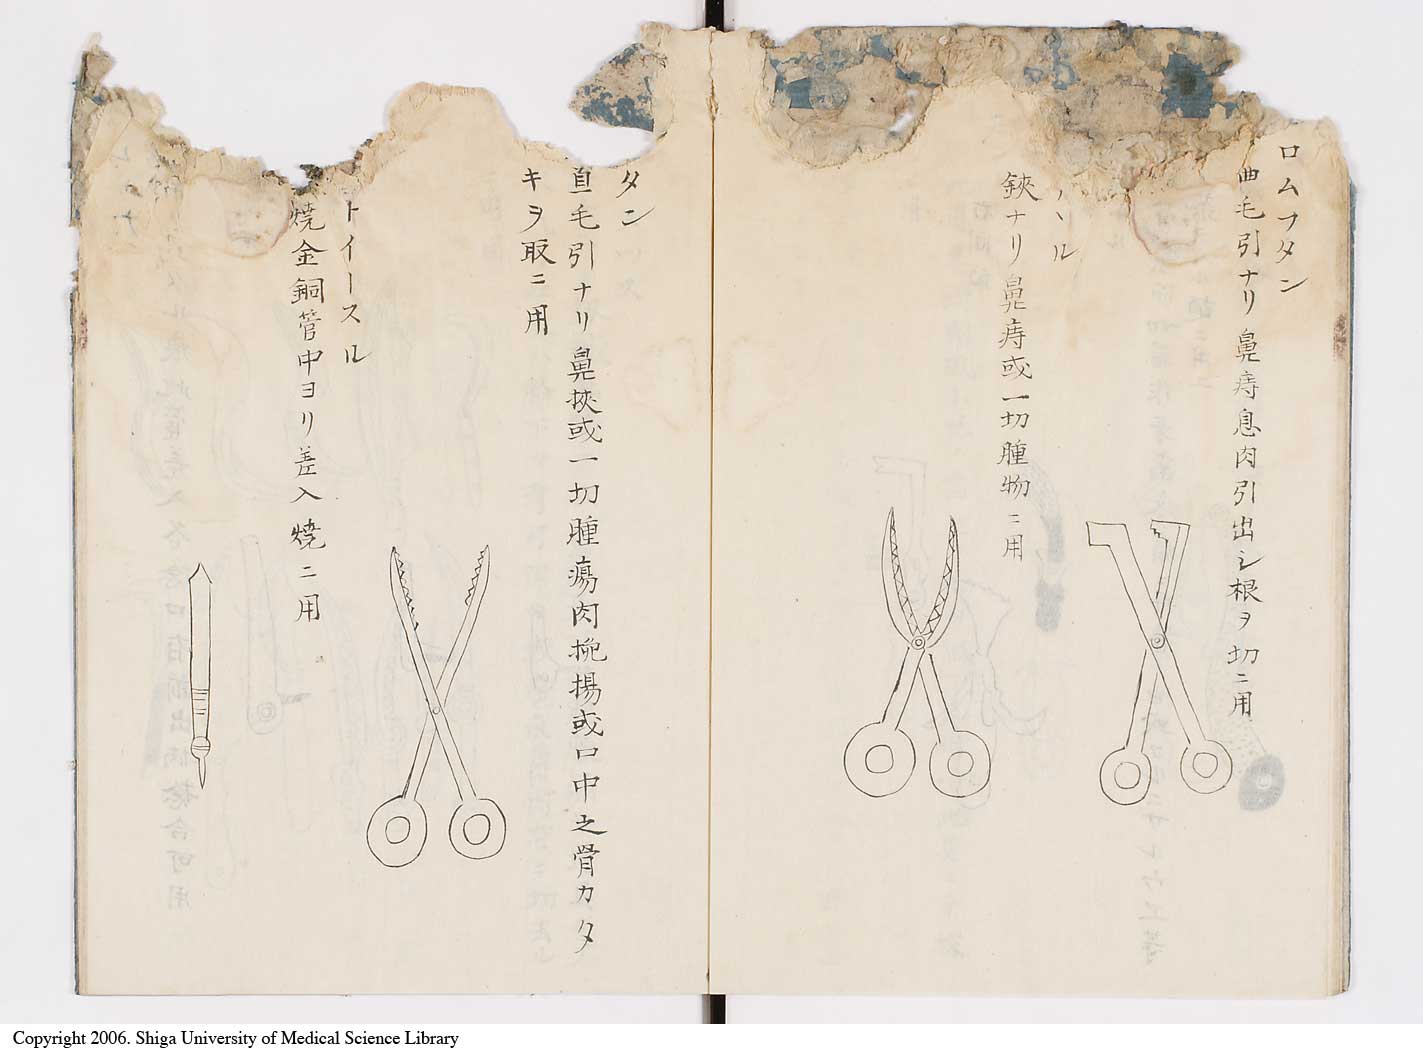 ロムフタン
曲毛引ナリ鼻痔息肉引出シ根ヲ切ニ用
ル
鋏ナリ鼻痔或一切腫物ニ用
タン
直毛引ナリ鼻挾或一切腫瘍肉挽揚或口中之骨カタ
キヲ取ニ用
トイースル
焼金銅管中ヨリ差入焼ニ用
Copyright 2006. Shiga University of Medical Science Library